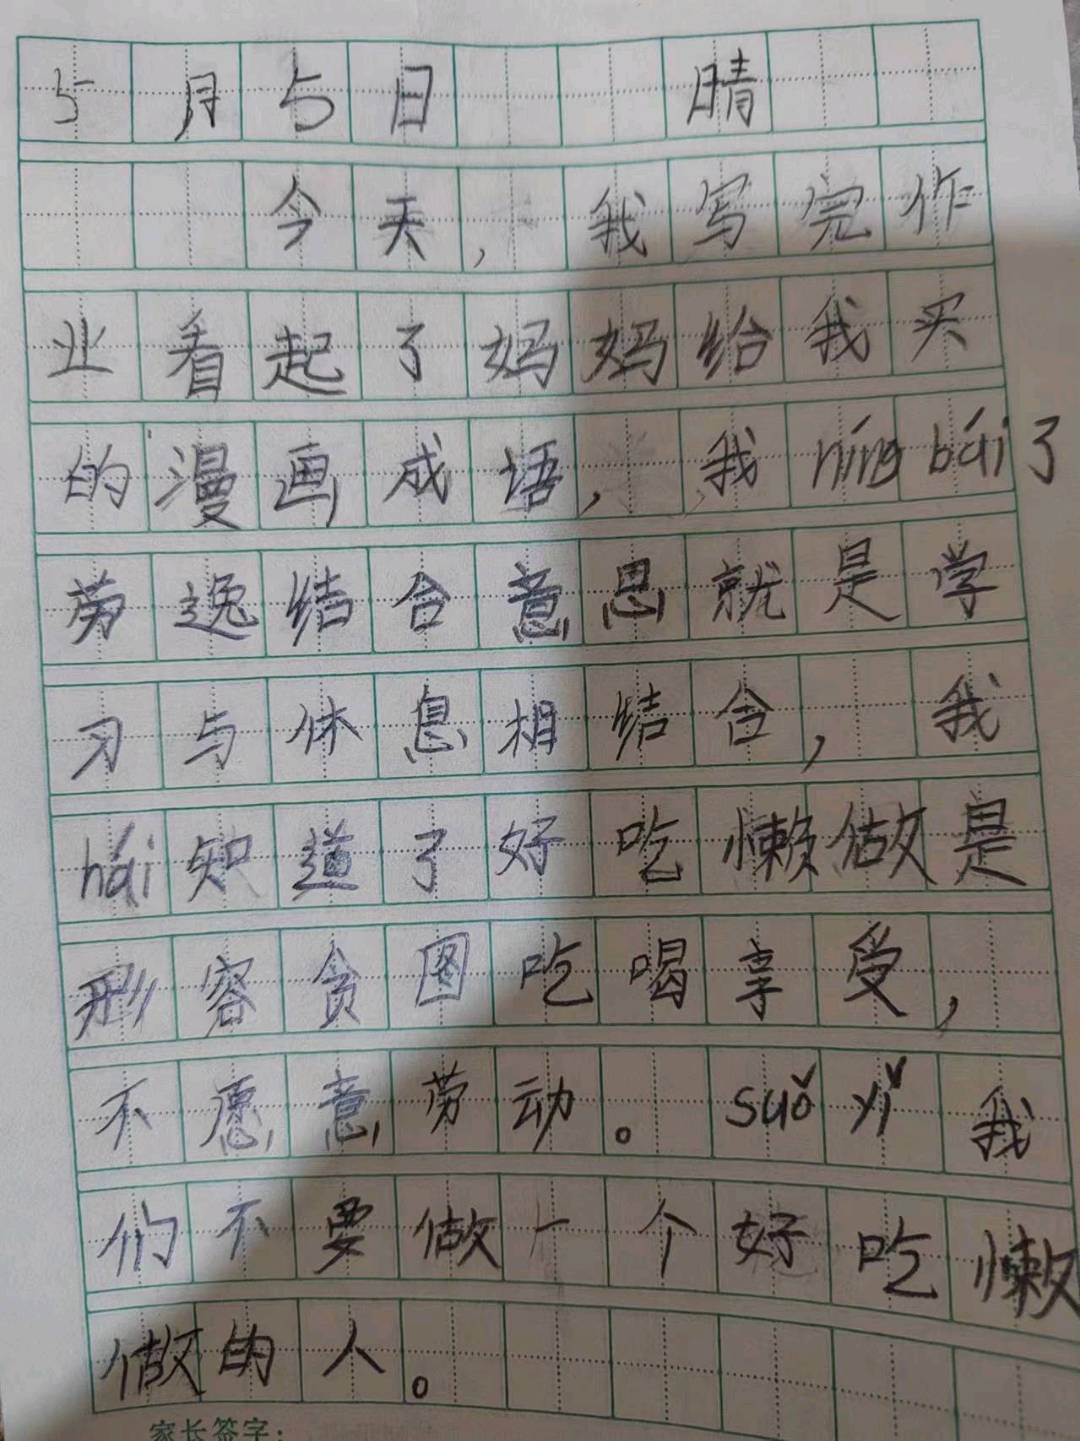 5月5日 晴
今天，我写完作
业看起了妈妈给我买
的漫画成语，我níng bái了
劳逸结合意思就是学
习与休息相结合，我
hái知道了好吃懒做是
形容贪图吃喝享受，
不愿意劳动。suǒ yǐ我
们不要做一个好吃懒
做的人。
家长签字：